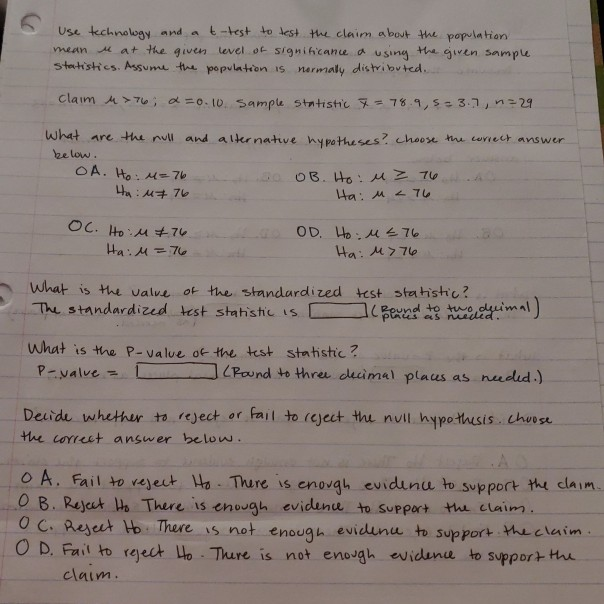 Use technology and a t-test to test the claim about the population
mean μ at the given level of significance α using the given sample
statistics. Assume the population is normally distributed.
Claim μ > 76; α = 0.10. Sample statistic x̄ = 78.9, s = 3.7, n = 29
What are the null and alternative hypotheses? choose the correct answer
below.
O A. H₀: μ = 76
Ha: μ ≠ 76
O B. H₀: μ ≥ 76
Ha: μ < 76
O C. H₀: μ ≠ 76
Ha: μ = 76
O D. H₀: μ ≤ 76
Ha: μ > 76
What is the value of the standardized test statistic?
The standardized test statistic is (Round to two decimal
places as needed.)
What is the P-value of the test statistic?
P-value = (Round to three decimal places as needed.)
Decide whether to reject or fail to reject the null hypothesis. choose
the correct answer below.
O A. Fail to reject H₀. There is enough evidence to support the claim.
O B. Reject H₀ There is enough evidence to support the claim.
O C. Reject H₀. There is not enough evidence to support the claim.
O D. Fail to reject H₀. There is not enough evidence to support the
claim.